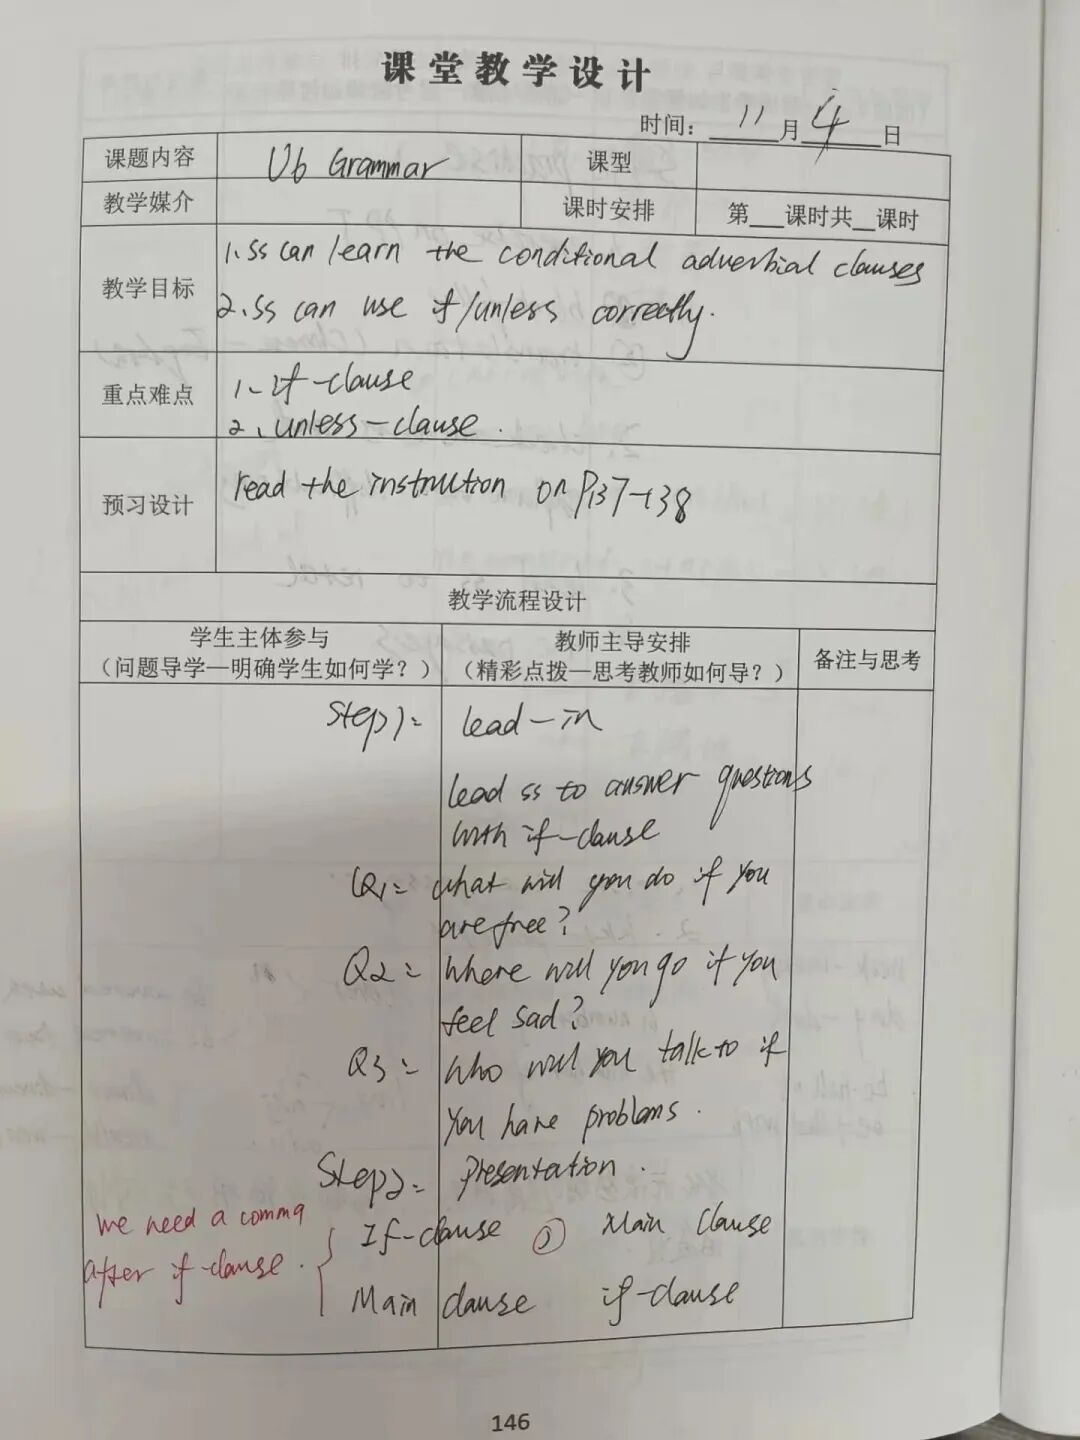 课堂教学设计
时间: 11 月 4 日
课题内容 U6 Grammar 课型
教学媒介 课时安排 第___课时共__课时
教学目标
1. ss can learn the conditional adverbial clauses
2. ss can use if/unless correctly.
重点难点
1. if-clause
2. unless-clause.
预习设计 read the instruction on P137-138
教学流程设计
学生主体参与
(问题导学—明确学生如何学?)
教师主导安排
(精彩点拨—思考教师如何导?)
备注与思考
Step1: lead-in
lead ss to answer questions
with if-clause
Q1: what will you do if you
are free?
Q2: Where will you go if you
feel sad?
Q3: Who will you talk to if
you have problems.
Step2: Presentation.
we need a comma
after if-clause.
If-clause , Main Clause
Main clause if-clause
146